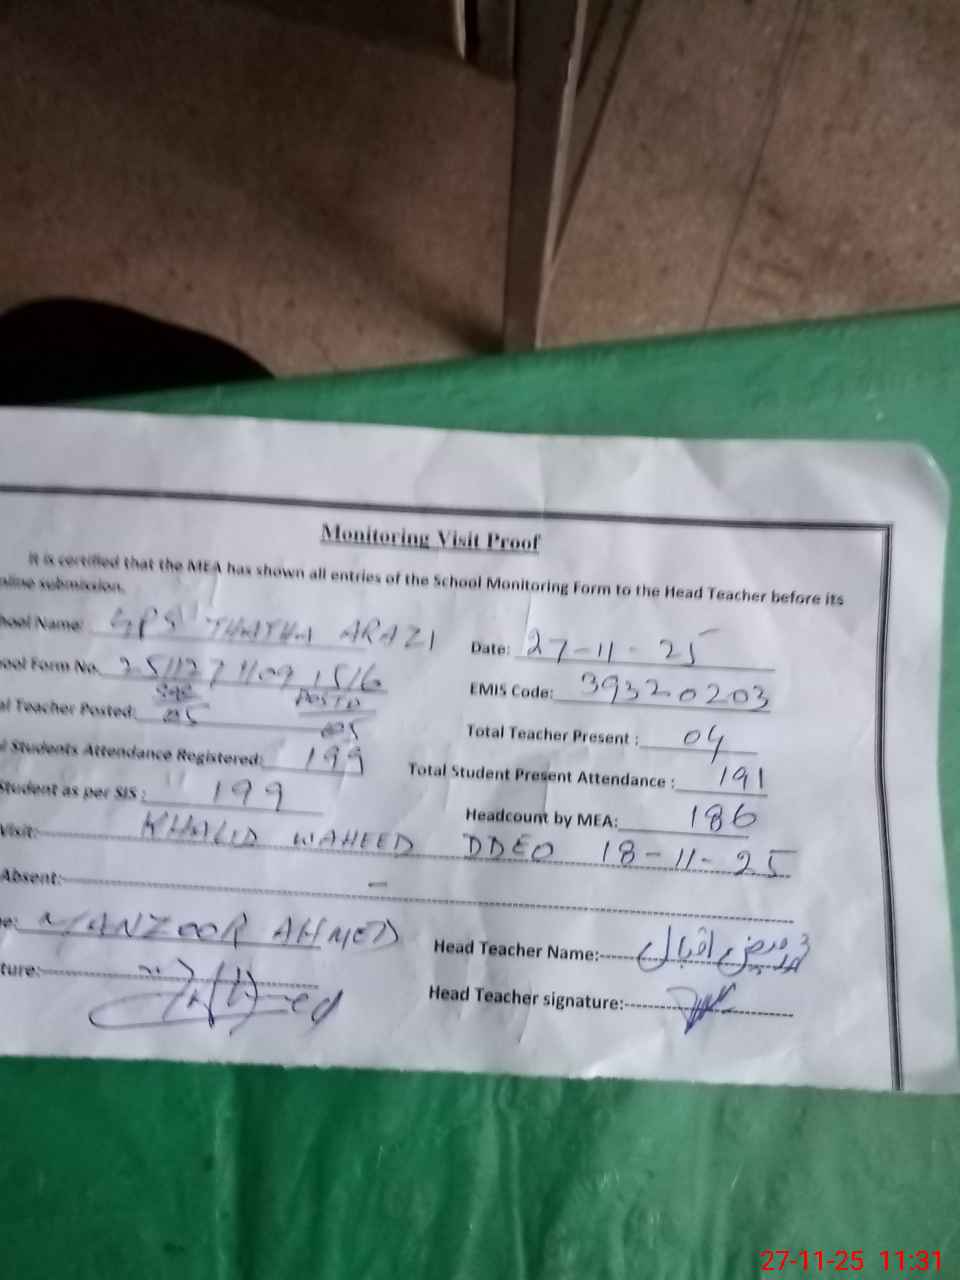 Monitoring Visit Proof
It is certified that the MEA has shown all entries of the School Monitoring Form to the Head Teacher before its
nline submission.
hool Name: GPS THATHA ARAZI Date: 27-11-25
ool Form No. 2511271109 1516 EMIS Code: 39320203
al Teacher Posted: 05 05 Total Teacher Present : 04
l Students Attendance Registered: 199 Total Student Present Attendance : 191
Student as per SIS : 199 Headcount by MEA: 186
Visit: KHALID WAHEED DDEO 18-11-25
Absent: -
e: MANZOOR AHMED Head Teacher Name: اقبال
ture: Head Teacher signature:
27-11-25 11:31